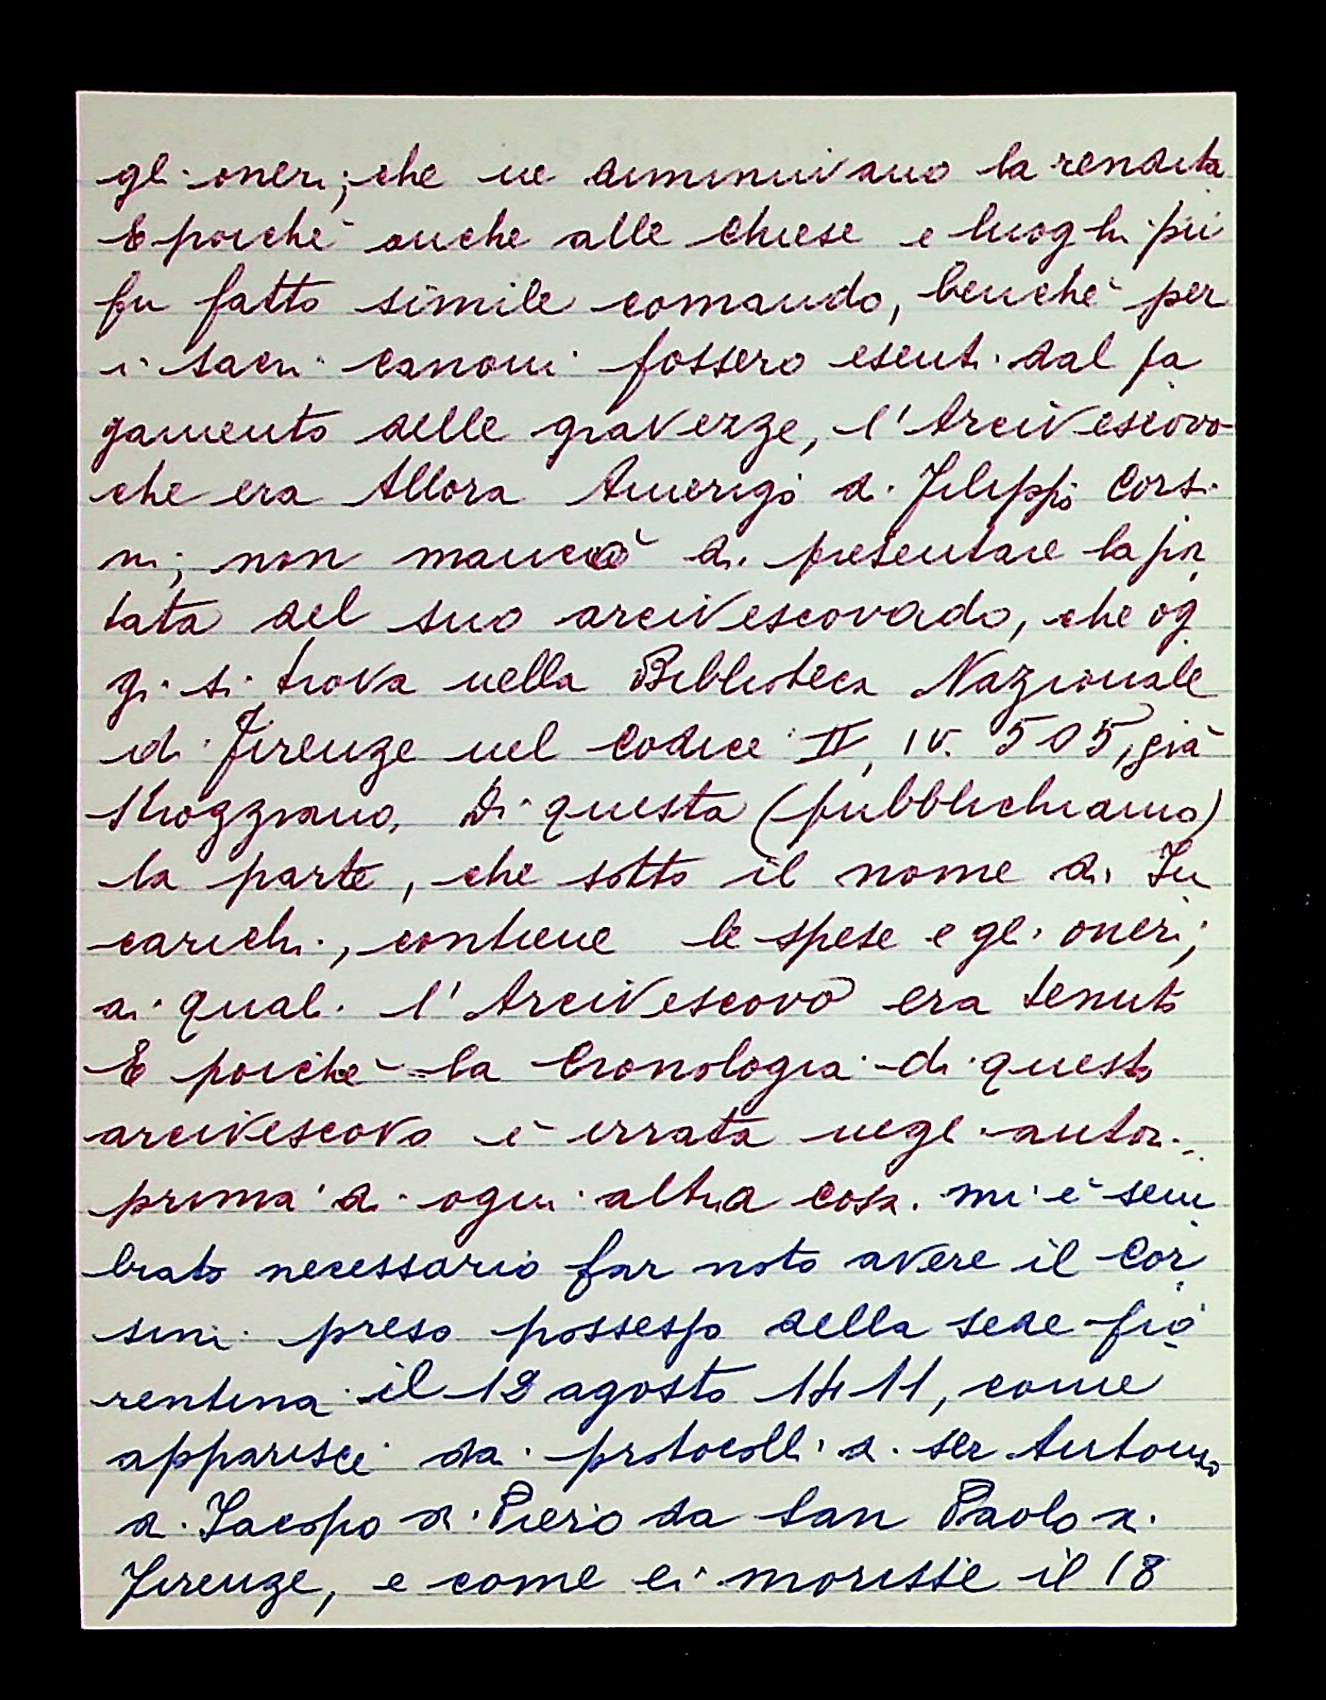 gli oneri; che ne diminuivano la rendita
E poichè anche alle chiese e luoghi pii
fu fatto simile comando, benchè per
i sacri canoni fossero esenti dal pa
gamento delle gravezze, l'Arcivescovo
che era Allora Amerigo di Filippo Corsi
ni; non mancò di presentare la por
tata del suo arcivescovado, che og
gi si trova nella Biblioteca Nazionale
di Firenze nel Codice II, IV. 505, già
Strozziano. Di questa (pubblichiamo)
la parte, che sotto il nome di In
carichi, contiene le spese e gli oneri;
ai quali l'Arcivescovo era tenuto
E poichè la Cronologia di questo
arcivescovo è errata negli autori
prima di ogni altra cosa. mi è sem
brato necessario far noto avere il Cor
sini preso possesso della sede fio
rentina il 12 agosto 1411, come
apparisce da protocolli di ser Antonio
di Iacopo di Piero da San Paolo di
Firenze, e come ei morisse il 18